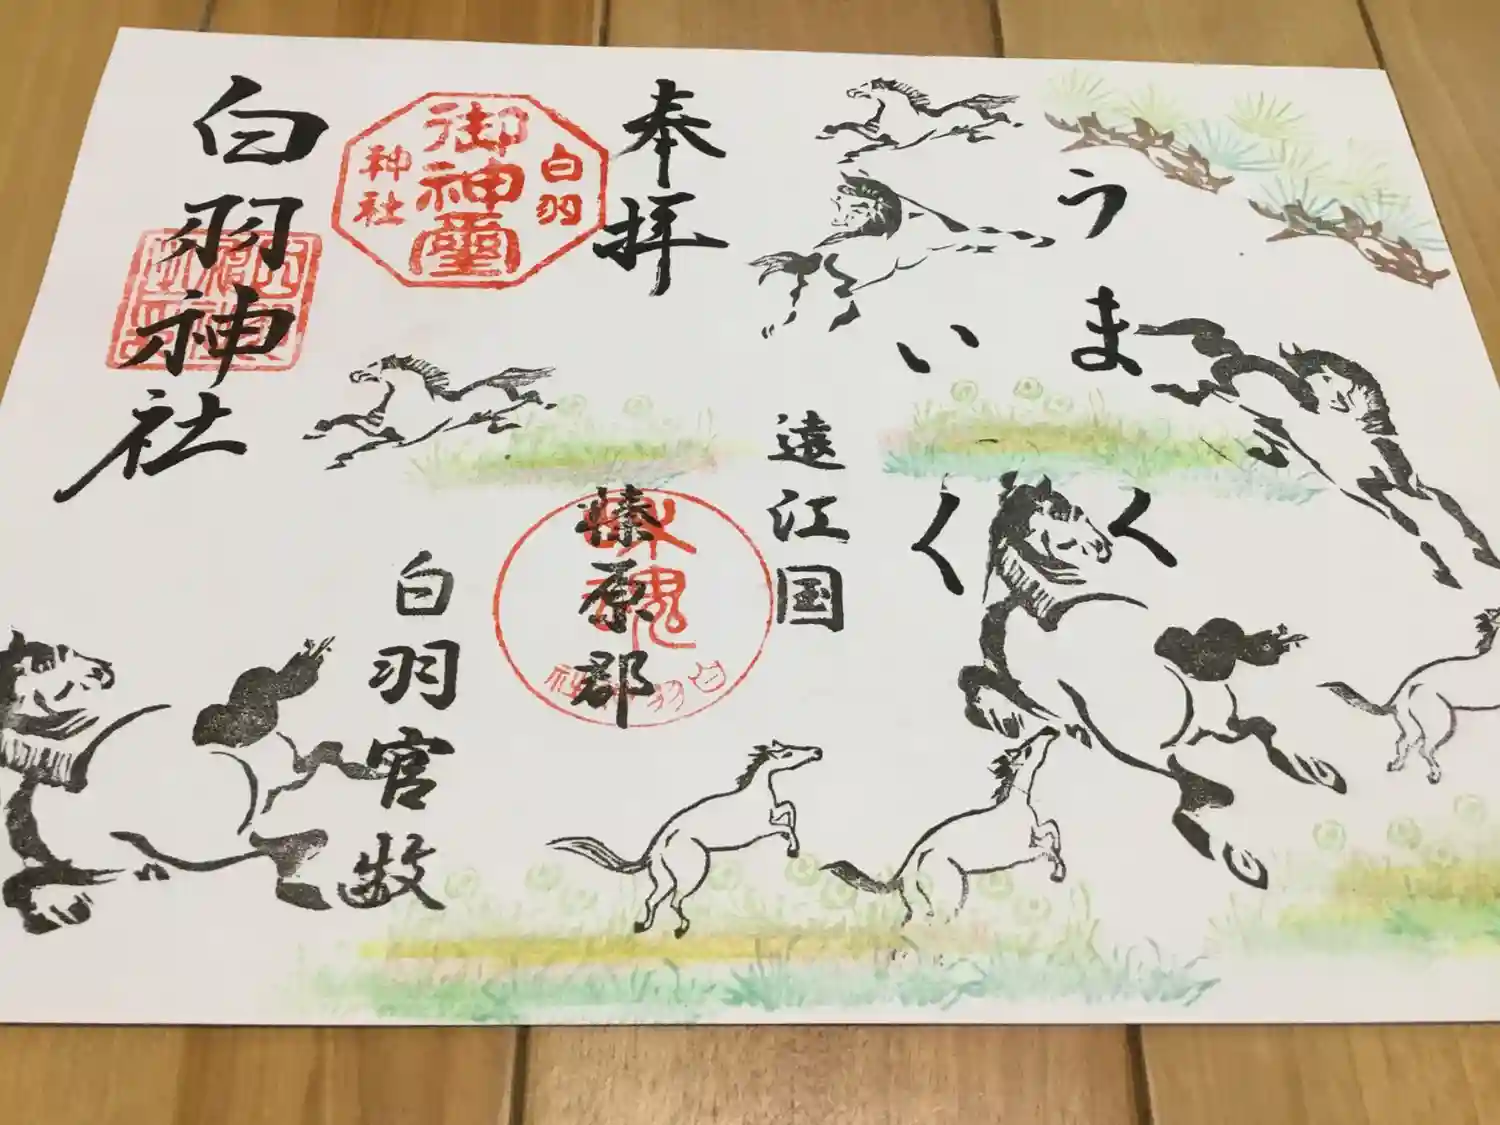 うまくいく
奉拝
遠江国
榛原郡
白羽官牧
白羽神社
白羽
御神霊
神社